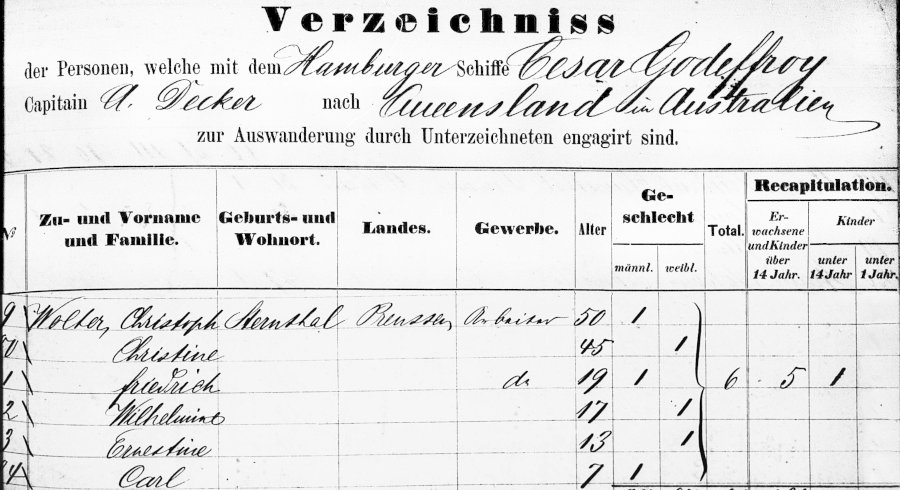 Verzeichniss
der Personen, welche mit dem Hamburger Schiffe Cesar Godeffroy
Capitain A. Decker nach Queensland in Australien
zur Auswanderung durch Unterzeichneten engagirt sind.
Recapitulation.
Zu- und Vorname und Familie. Geburts- und Wohnort. Landes. Gewerbe. Alter Ge-schlecht Total. Er-wachsene und Kinder über 14 Jahr. Kinder
männl. weibl. unter 14 Jahr unter 1 Jahr.
9 Wolter, Christoph Sternthal Preussen Arbeiter 50 1
70 Christine 45 1
1 Friedrich do 19 1 6 5 1
2 Wilhelmine 17 1
3 Ernestine 13 1
4 Carl 7 1